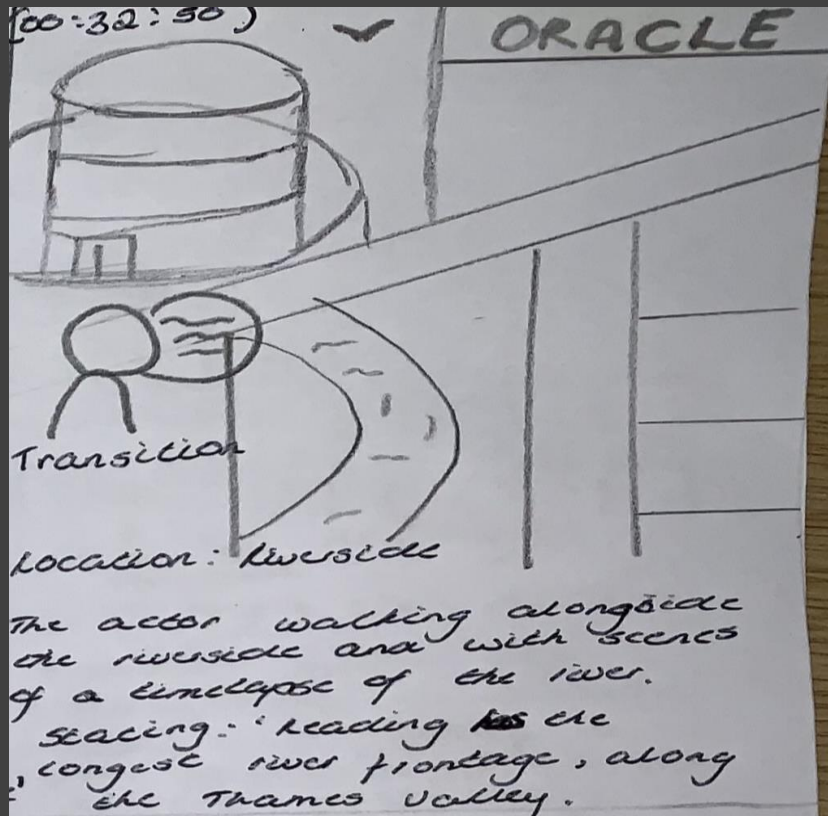 (00:32:50)
ORACLE
Transition
Location: Riverside
The actor walking alongside
the riverside and with scenes
of a timelapse of the river.
stating: 'Reading has the
longest river frontage, along
the Thames Valley.